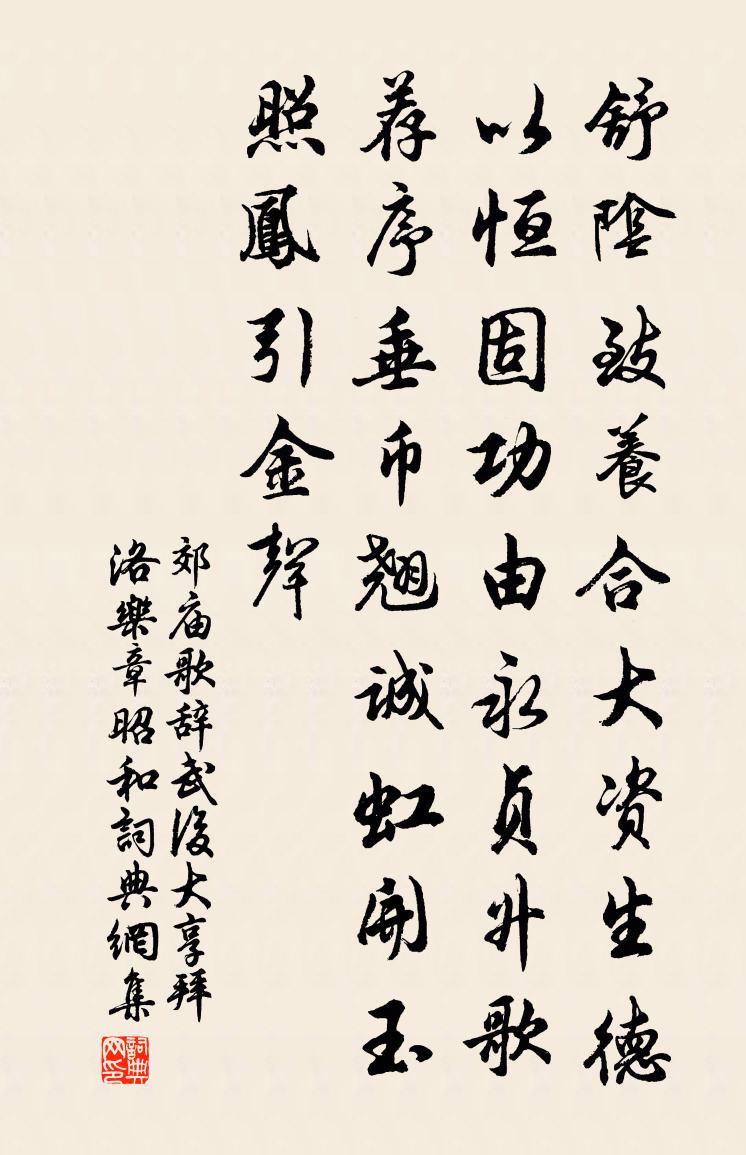 舒陰致養合大資生德
以恒固功由永貞升歌
荐序垂币翹誠虹開玉
照鳳引金聲
郊庙歌辞武後大享拜
洛樂章昭和詞典網集
詞典网印